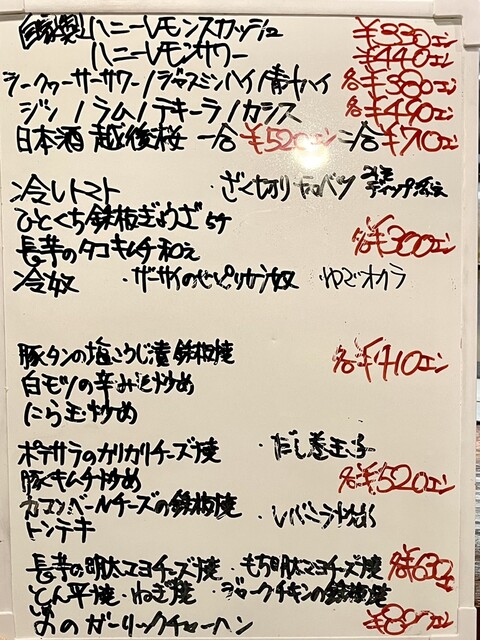 自家製 ハニーレモンスカッシュ ¥330エン
ハニーレモンサワー ¥440エン
シークヮーサーサワー/ジャスミンハイ/青汁ハイ 各¥380エン
ジン/ラム/テキーラ/カシス 各¥490エン
日本酒 越後桜 一合¥520エン 二合¥710エン
冷しトマト ・ざく切りキャベツ ディップ添え
ひとくち鉄板ぎょうざ5ケ
長芋のタコキムチ和え 各¥300エン
冷奴 ・ザーサイのせピリカラ奴 ゆずオカラ
豚タンの塩こうじ漬鉄板焼 各¥410エン
白モツの辛みそ炒め
にら玉炒め
ポテサラのカリカリチーズ焼 ・だし巻玉子
豚キムチ炒め 各¥520エン
カマンベールチーズの鉄板焼 ・レバニラ炒め
トンテキ
長芋の明太マヨチーズ焼 ・もち明太マヨチーズ焼 各¥630エン
とん平焼・ねぎ焼・ジャークチキンの鉄板焼
ガーリックチャーハン